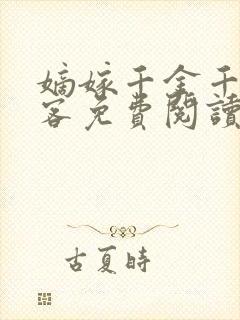 嫡嫁千金千
客免費閱讀
古夏時